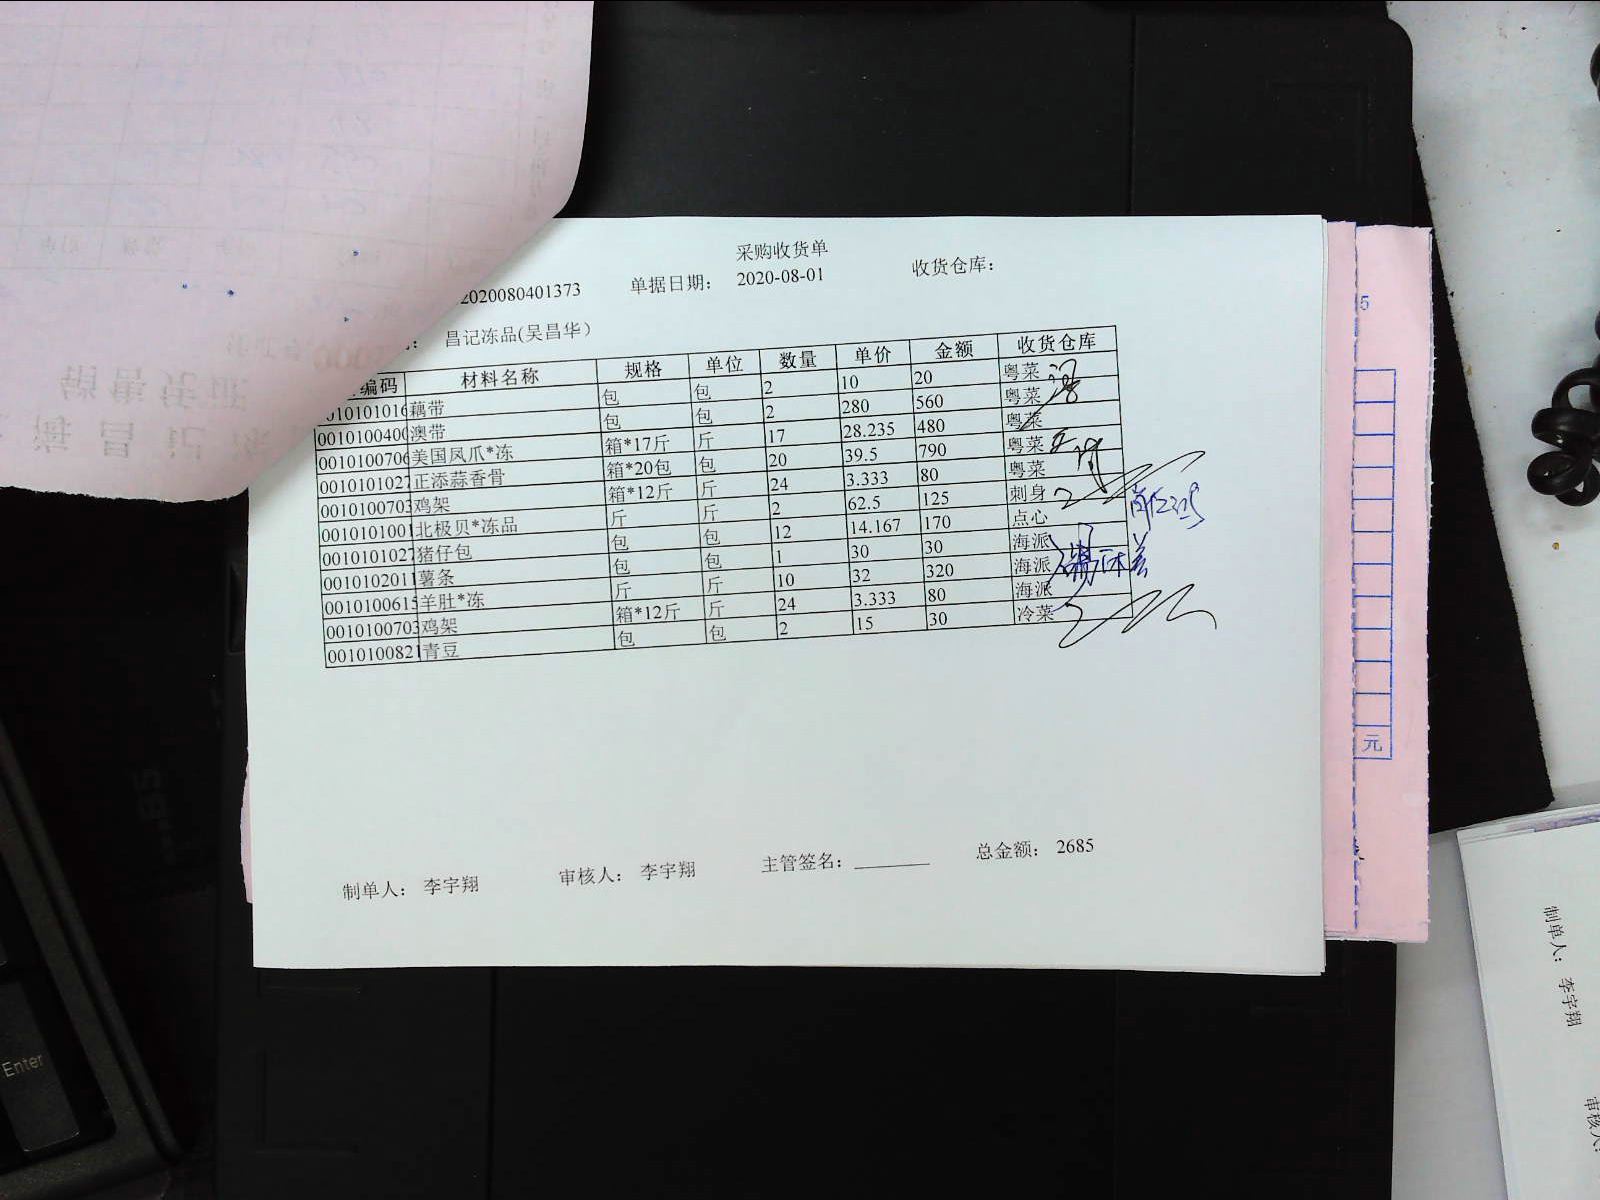 采购收货单
2020080401373 单据日期： 2020-08-01 收货仓库：
： 昌记冻品(吴昌华）
编码 材料名称 规格 单位 数量 单价 金额 收货仓库
010101016 藕带 包 包 2 10 20 粤菜
0010100400 澳带 包 包 2 280 560 粤菜
0010100706 美国凤爪*冻 箱*17斤 斤 17 28.235 480 粤菜
0010101027 正添蒜香骨 箱*20包 包 20 39.5 790 粤菜
0010100703 鸡架 箱*12斤 斤 24 3.333 80 粤菜
0010101001 北极贝*冻品 斤 斤 2 62.5 125 刺身
0010101027 猪仔包 包 包 12 14.167 170 点心
0010102011 薯条 包 包 1 30 30 海派
0010100615 羊肚*冻 斤 斤 10 32 320 海派
0010100703 鸡架 箱*12斤 斤 24 3.333 80 海派
0010100821 青豆 包 包 2 15 30 冷菜
制单人： 李宇翔 审核人： 李宇翔 主管签名： 总金额： 2685
5
元
Enter
制单人： 李宇翔
审核人：